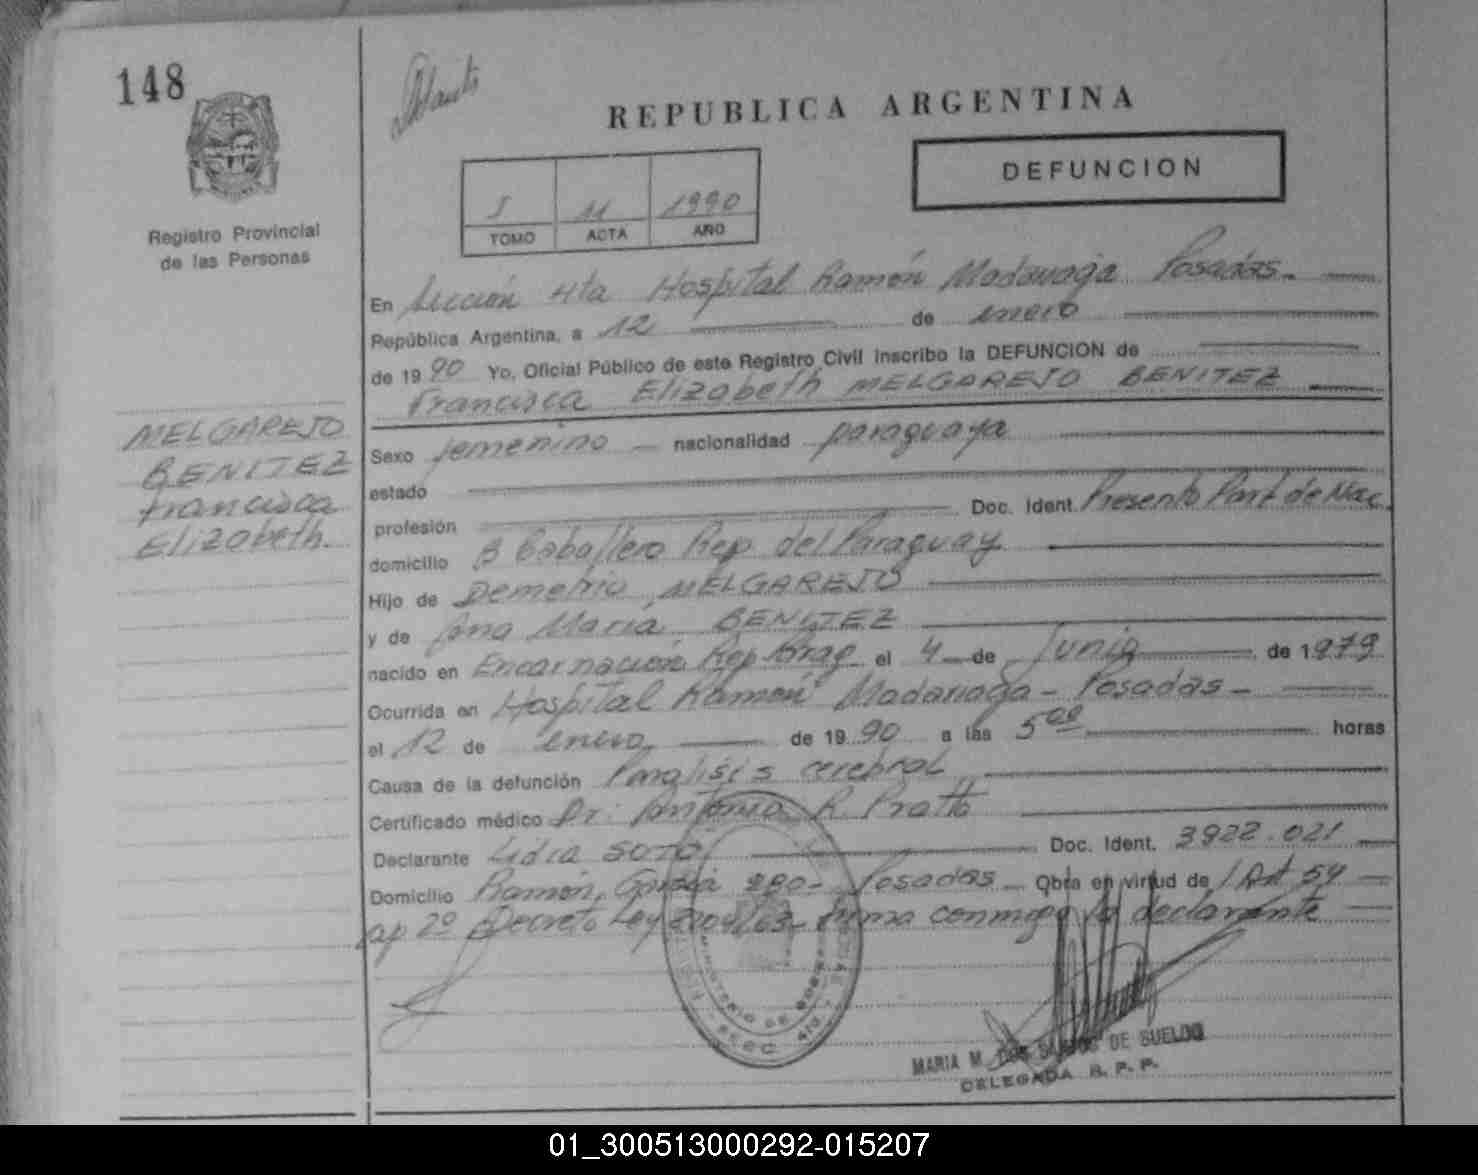 148
REPUBLICA ARGENTINA
DEFUNCION
I 11 1990
TOMO ACTA AÑO
Registro Provincial
de las Personas
En Sección 4ta Hospital Ramón Madariaga Posadas.
República Argentina, a 12 de enero
de 1990 Yo, Oficial Público de este Registro Civil inscribo la DEFUNCION de
Francisca Elizabeth MELGAREJO BENITEZ
MELGAREJO
BENITEZ
Francisca
Elizabeth.
Sexo femenino nacionalidad paraguaya
estado
profesión Doc. Ident. Presento Part de Nac.
domicilio B Caballero Rep del Paraguay
Hijo de Demetrio MELGAREJO
y de Ana Maria BENITEZ
nacido en Encarnación Rep el 4 de Junio de 1979
Ocurrida en Hospital Ramón Madariaga - Posadas -
el 12 de enero de 1990 a las 5 00 horas
Causa de la defunción Paralisis cerebral
Certificado médico Dr. Antonio R. Pratto
Declarante Lidia SOTO Doc. Ident. 3922.021
Domicilio Ramón García 290- Posadas Obra en virtud de l Art 54
ap 2º Decreto Ley 8204/63- firma conmigo la declarante
MARIA M. DOS SANTOS DE SUELDO
DELEGADA R. P. P.
01_300513000292-015207